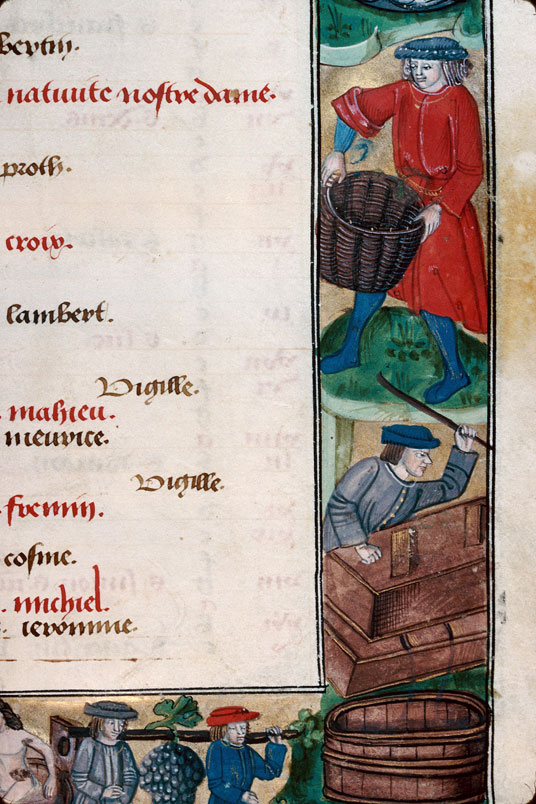 bertin.
natiuite nostre dame.
proth.
croix.
lambert.
Vigille.
mahieu.
meurice.
Vigille.
fremin.
cosme.
michiel.
ieromme.